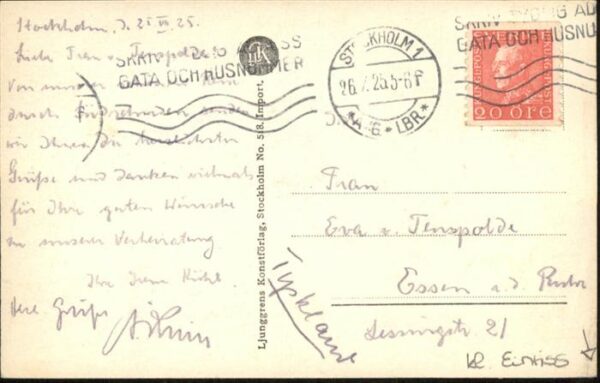 Stockholm, d. 25. VII. 25.
Liebe Frau v. Tenspolde!
Von unserer
durch senden
wir Ihnen die herzlichsten
Grüße und danken vielmals
für Ihre guten Wünsche
zu unserer Verheiratung.
Ihre Irene
Herzl. Grüße
SKRIV TYDLIG ADRESS
GATA OCH HUSNUMMER
STOCKHOLM 1
26.7.25.5-6F
*A.G.*LBR*
SKRIV TYDLIG AD
GATA OCH HUSNU
20 ÖRE
Ljunggrens Konstförlag, Stockholm No. 518. Import.
Frau
Eva v. Tenspolde
Essen a.d. Ruhr
Lessingstr. 21
Tyskland
kl. Einriss